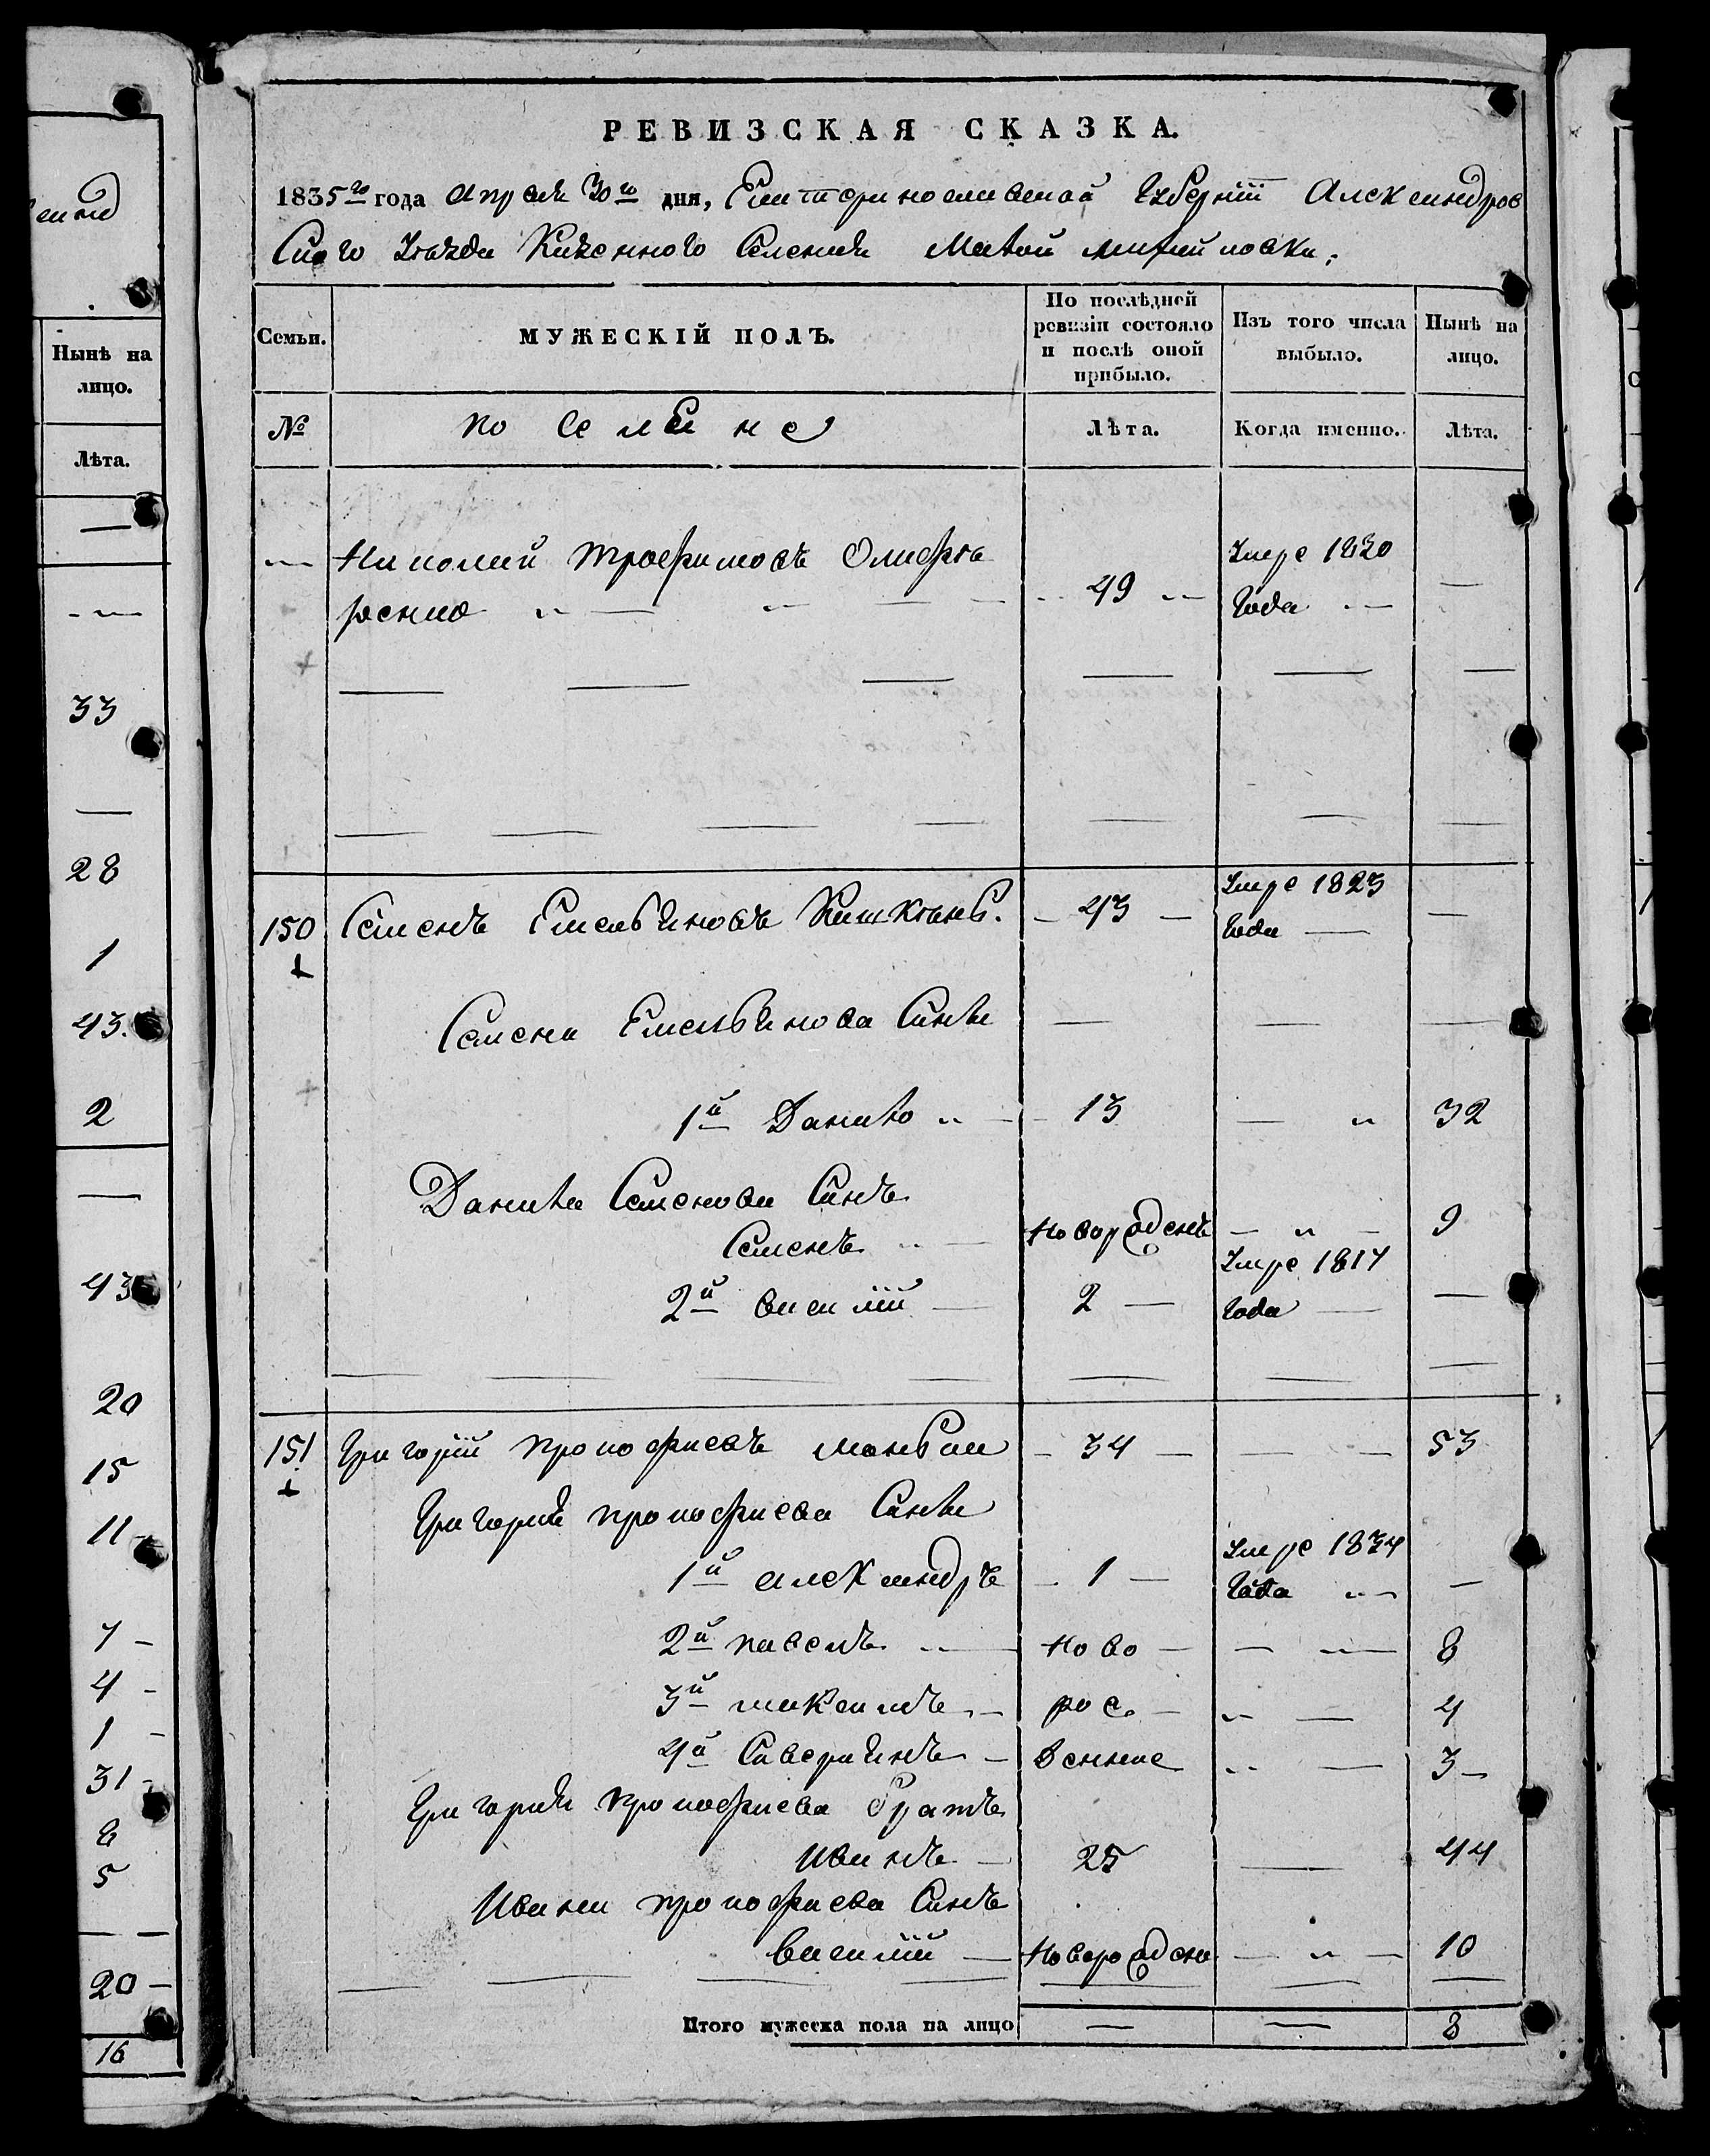 РЕВИЗСКАЯ СКАЗКА.
1835го года Апреля 30го дня, Екатеринославской Губернїи Александров
скаго Уезда Казенного Селения Малой Михайловки.
Нынѣ на
лицо.
Лѣта.
33
28
1
43.
2
43
20
15
11
7
4
1
31
8
5
20
16
Семьи.
МУЖЕСКІЙ ПОЛЪ.
По послѣдней
ревизіи состояло
и послѣ оной
прибыло.
Изъ того числа
выбыло.
Нынѣ на
лицо.
№
Лѣта.
Когда именно.
Лѣта.
Николай Трофимовъ
49
Умре 1830
Года
150 Семенъ Емельяновъ
43
Умре 1823
Года
Семена Емельянова Сины
1й Данило 13 32
Данила Семенова Синъ
Семенъ Новорожденъ 9
2й Василїй 2
Умре 1817
Года
151 Григорїй Прокофиевъ 34 53
Григория Прокофиева Сины
1й Александръ 1
Умре 1834
Года
2й Павелъ Ново 8
3й Максимъ рож 4
4й Савериянъ денные 3
Григория Прокофиева Братъ
Иванъ 25 44
Ивана Прокофиева Синъ
Василїй Новорожден 10
Итого мужеска пола на лицо 8